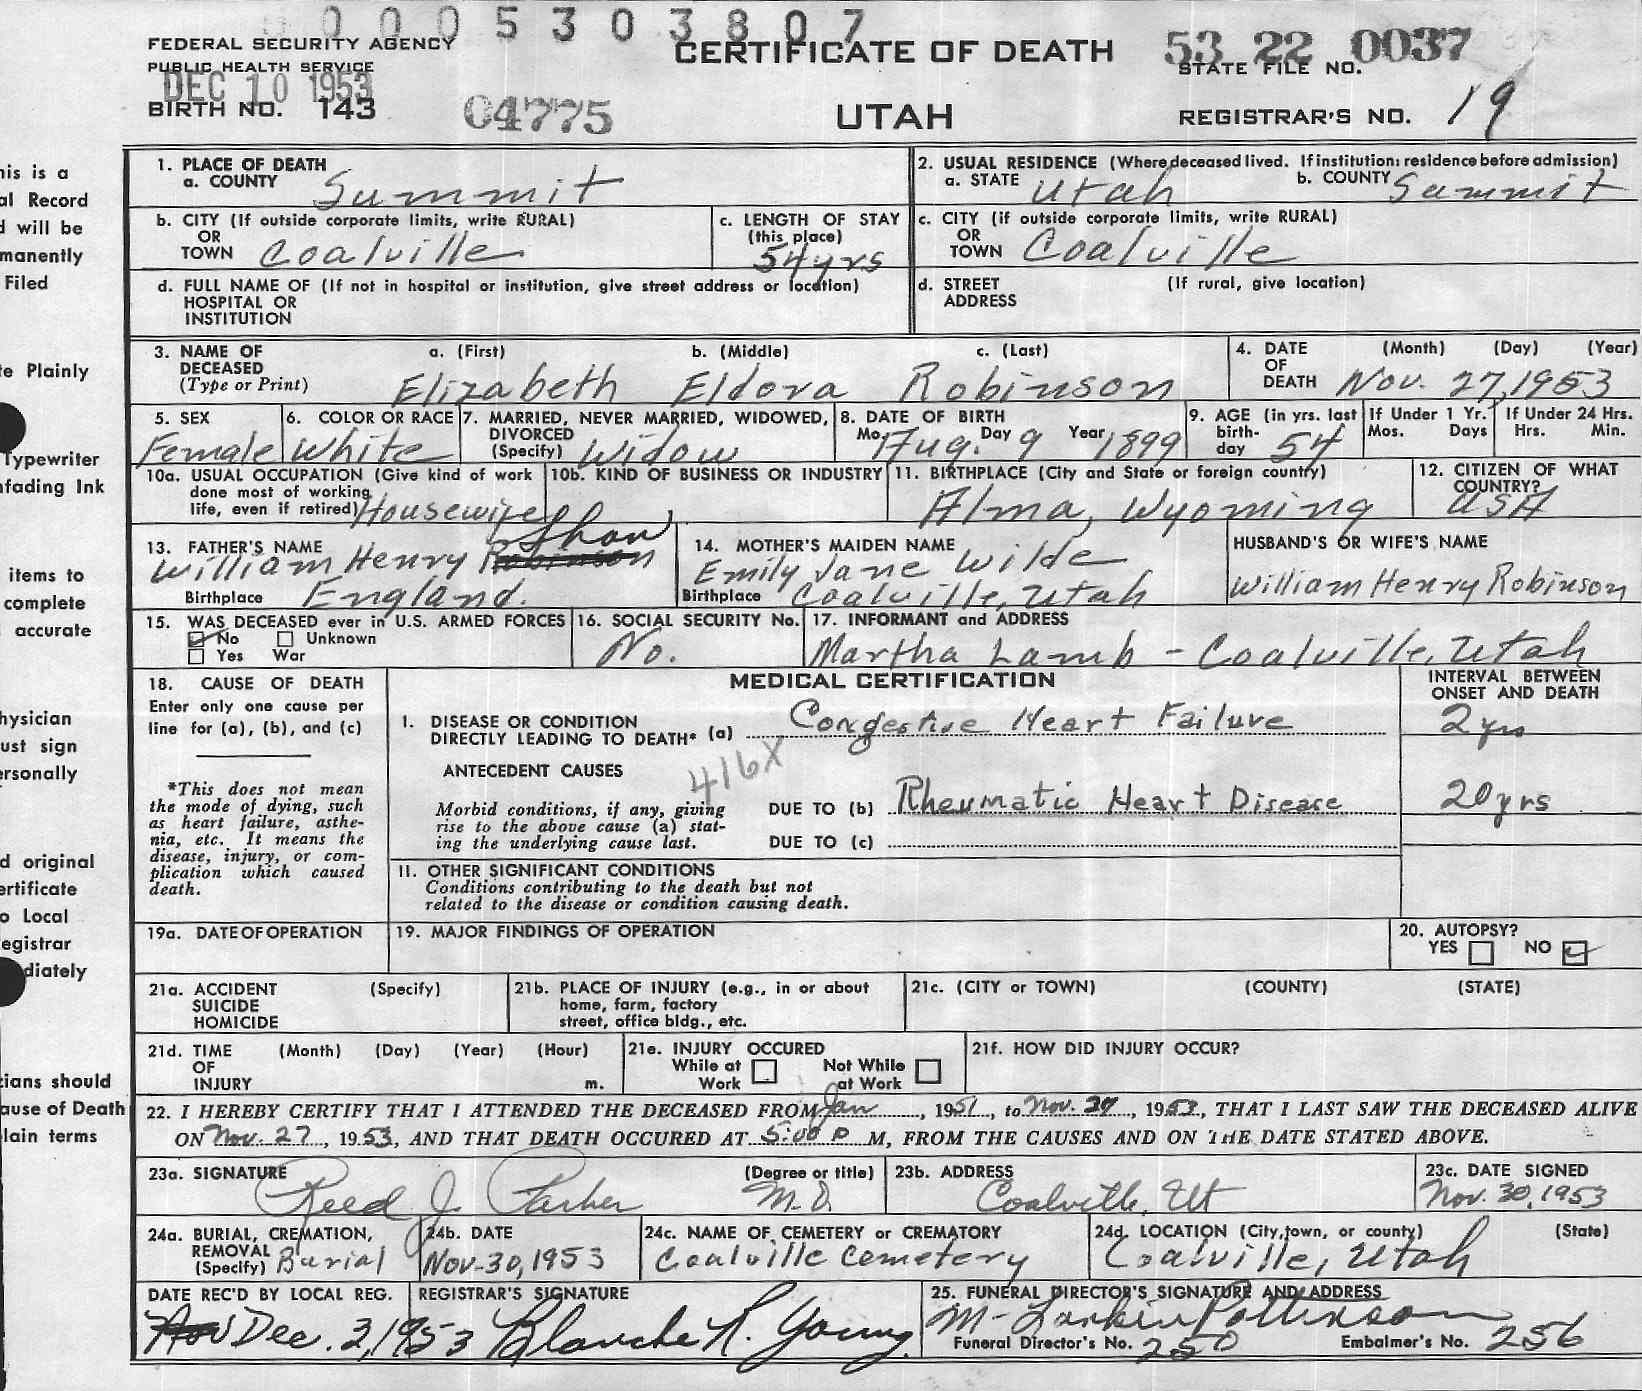 0005303807
FEDERAL SECURITY AGENCY
PUBLIC HEALTH SERVICE
DEC 10 1953
BIRTH NO. 143
04775
CERTIFICATE OF DEATH
UTAH
53 22 0037
STATE FILE NO.
REGISTRAR'S NO. 19
1. PLACE OF DEATH
a. COUNTY Summit
2. USUAL RESIDENCE (Where deceased lived. If institution: residence before admission)
a. STATE Utah b. COUNTY Summit
b. CITY (If outside corporate limits, write RURAL)
OR
TOWN Coalville
c. LENGTH OF STAY
(this place)
54 yrs
c. CITY (if outside corporate limits, write RURAL)
OR
TOWN Coalville
d. FULL NAME OF (If not in hospital or institution, give street address or location)
HOSPITAL OR
INSTITUTION
d. STREET (If rural, give location)
ADDRESS
3. NAME OF
DECEASED
(Type or Print)
a. (First) b. (Middle) c. (Last)
Elizabeth Eldora Robinson
4. DATE (Month) (Day) (Year)
OF
DEATH Nov. 27, 1953
5. SEX
Female
6. COLOR OR RACE
White
7. MARRIED, NEVER MARRIED, WIDOWED,
DIVORCED
(Specify) Widow
8. DATE OF BIRTH
Mo. Aug. Day 9 Year 1899
9. AGE (in yrs. last
birth-
day 54
If Under 1 Yr.
Mos. Days
If Under 24 Hrs.
Hrs. Min.
10a. USUAL OCCUPATION (Give kind of work
done most of working
life, even if retired) Housewife
10b. KIND OF BUSINESS OR INDUSTRY
11. BIRTHPLACE (City and State or foreign country)
Alma, Wyoming
12. CITIZEN OF WHAT
COUNTRY?
USA
13. FATHER'S NAME
Shaw
William Henry Robinson
Birthplace England.
14. MOTHER'S MAIDEN NAME
Emily Jane Wilde
Birthplace Coalville, Utah
HUSBAND'S OR WIFE'S NAME
William Henry Robinson
15. WAS DECEASED ever in U.S. ARMED FORCES
No Unknown
Yes War
16. SOCIAL SECURITY No.
No.
17. INFORMANT and ADDRESS
Martha Lamb - Coalville, Utah
18. CAUSE OF DEATH
Enter only one cause per
line for (a), (b), and (c)
*This does not mean
the mode of dying, such
as heart failure, asthe-
nia, etc. It means the
disease, injury, or com-
plication which caused
death.
MEDICAL CERTIFICATION
INTERVAL BETWEEN
ONSET AND DEATH
I. DISEASE OR CONDITION
DIRECTLY LEADING TO DEATH* (a) Congestive Heart Failure 2 yrs
416X
ANTECEDENT CAUSES
Morbid conditions, if any, giving
rise to the above cause (a) stat-
ing the underlying cause last.
DUE TO (b) Rheumatic Heart Disease 20 yrs
DUE TO (c)
II. OTHER SIGNIFICANT CONDITIONS
Conditions contributing to the death but not
related to the disease or condition causing death.
19a. DATE OF OPERATION
19. MAJOR FINDINGS OF OPERATION
20. AUTOPSY?
YES NO
21a. ACCIDENT (Specify)
SUICIDE
HOMICIDE
21b. PLACE OF INJURY (e.g., in or about
home, farm, factory
street, office bldg., etc.
21c. (CITY or TOWN) (COUNTY) (STATE)
21d. TIME (Month) (Day) (Year) (Hour)
OF
INJURY m.
21e. INJURY OCCURED
While at Not While
Work at Work
21f. HOW DID INJURY OCCUR?
22. I HEREBY CERTIFY THAT I ATTENDED THE DECEASED FROM Jan, 1951, to Nov. 27, 1953, THAT I LAST SAW THE DECEASED ALIVE
ON Nov. 27, 1953, AND THAT DEATH OCCURED AT 5:00 P M, FROM THE CAUSES AND ON THE DATE STATED ABOVE.
23a. SIGNATURE (Degree or title)
Reed J. M.D.
23b. ADDRESS
Coalville, Ut
23c. DATE SIGNED
Nov. 30, 1953
24a. BURIAL, CREMATION,
REMOVAL
(Specify) Burial
24b. DATE
Nov-30, 1953
24c. NAME OF CEMETERY OR CREMATORY
Coalville Cemetery
24d. LOCATION (City, town, or county) (State)
Coalville, Utah
DATE REC'D BY LOCAL REG.
Nov Dec. 3, 1953
REGISTRAR'S SIGNATURE
Blanche R. Young
25. FUNERAL DIRECTOR'S SIGNATURE AND ADDRESS
M-
Funeral Director's No. 250 Embalmer's No. 256
his is a
al Record
d will be
manently
Filed
te Plainly
Typewriter
nfading Ink
items to
complete
accurate
hysician
ust sign
ersonally
d original
ertificate
o Local
egistrar
diately
cians should
ause of Death
lain terms